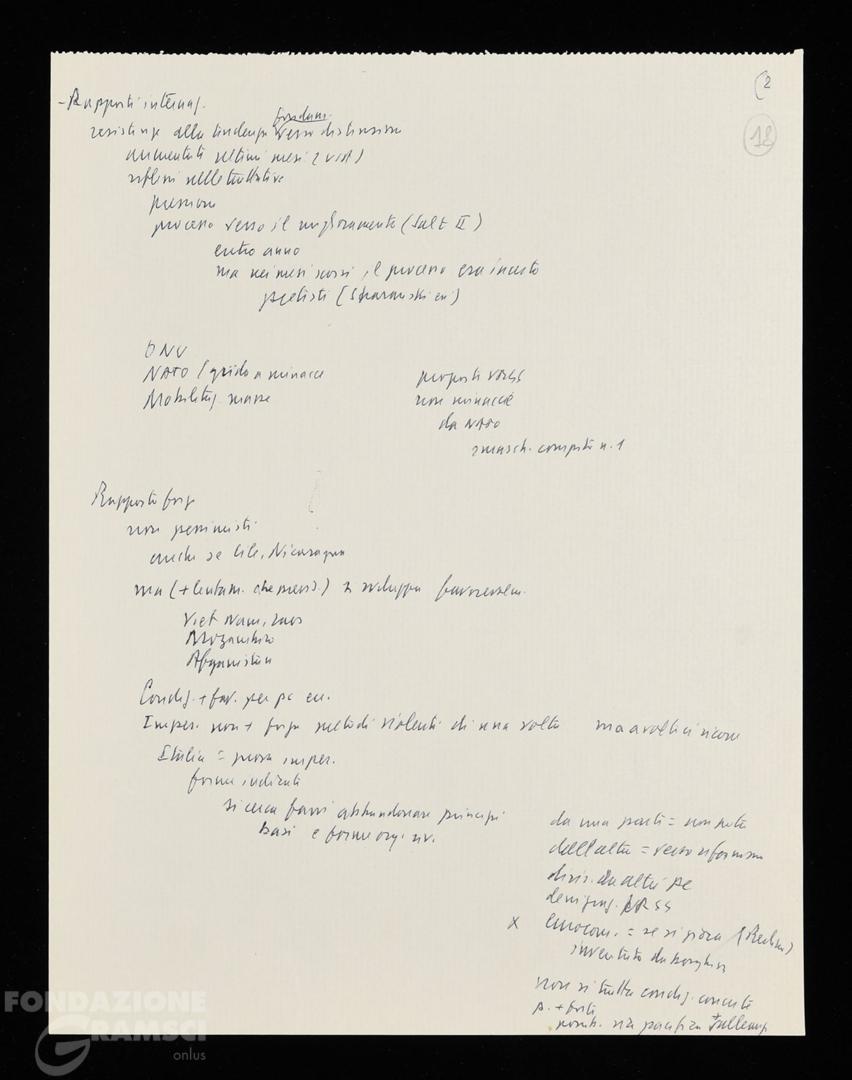 (2
18
- Rapporti internaz.
fondam.
resistenze alla tendenza verso distensione
aumentati ultimi mesi (USA)
riflessi nelle trattative
pressione
processo verso il miglioramento (Salt II)
entro anno
ma nei mesi scorsi, il processo era incerto
pretesti
ONU
NATO (grido a minacce
Mobilitaz. masse
proposte URSS
non minaccie
da NATO
smasch. compito n. 1
Rapporto forze
non pessimisti
anche se Cile, Nicaragua
ma (+ lentam. che prev.) si sviluppa favorevolm.
Viet Nam, Laos
Mozambico
Afganistan
Condiz. + fav. per pc eu.
Imper. non + forze metodi violenti di una volta
ma a volte ci ricorre
Italia = prova imper.
forme indirette
si cerca farci abbandonare principi
basi e forme org. riv.
da una parte = non
dall'altra = verso riformismo
divis. da altri pc
denigraz. URSS
x eurocom. = se si pensa (Berlin.)
inventato da borghesi
non si tratta condiz. concrete
p. + forti
possib. via pacifica
FONDAZIONE
GRAMSCI
onlus